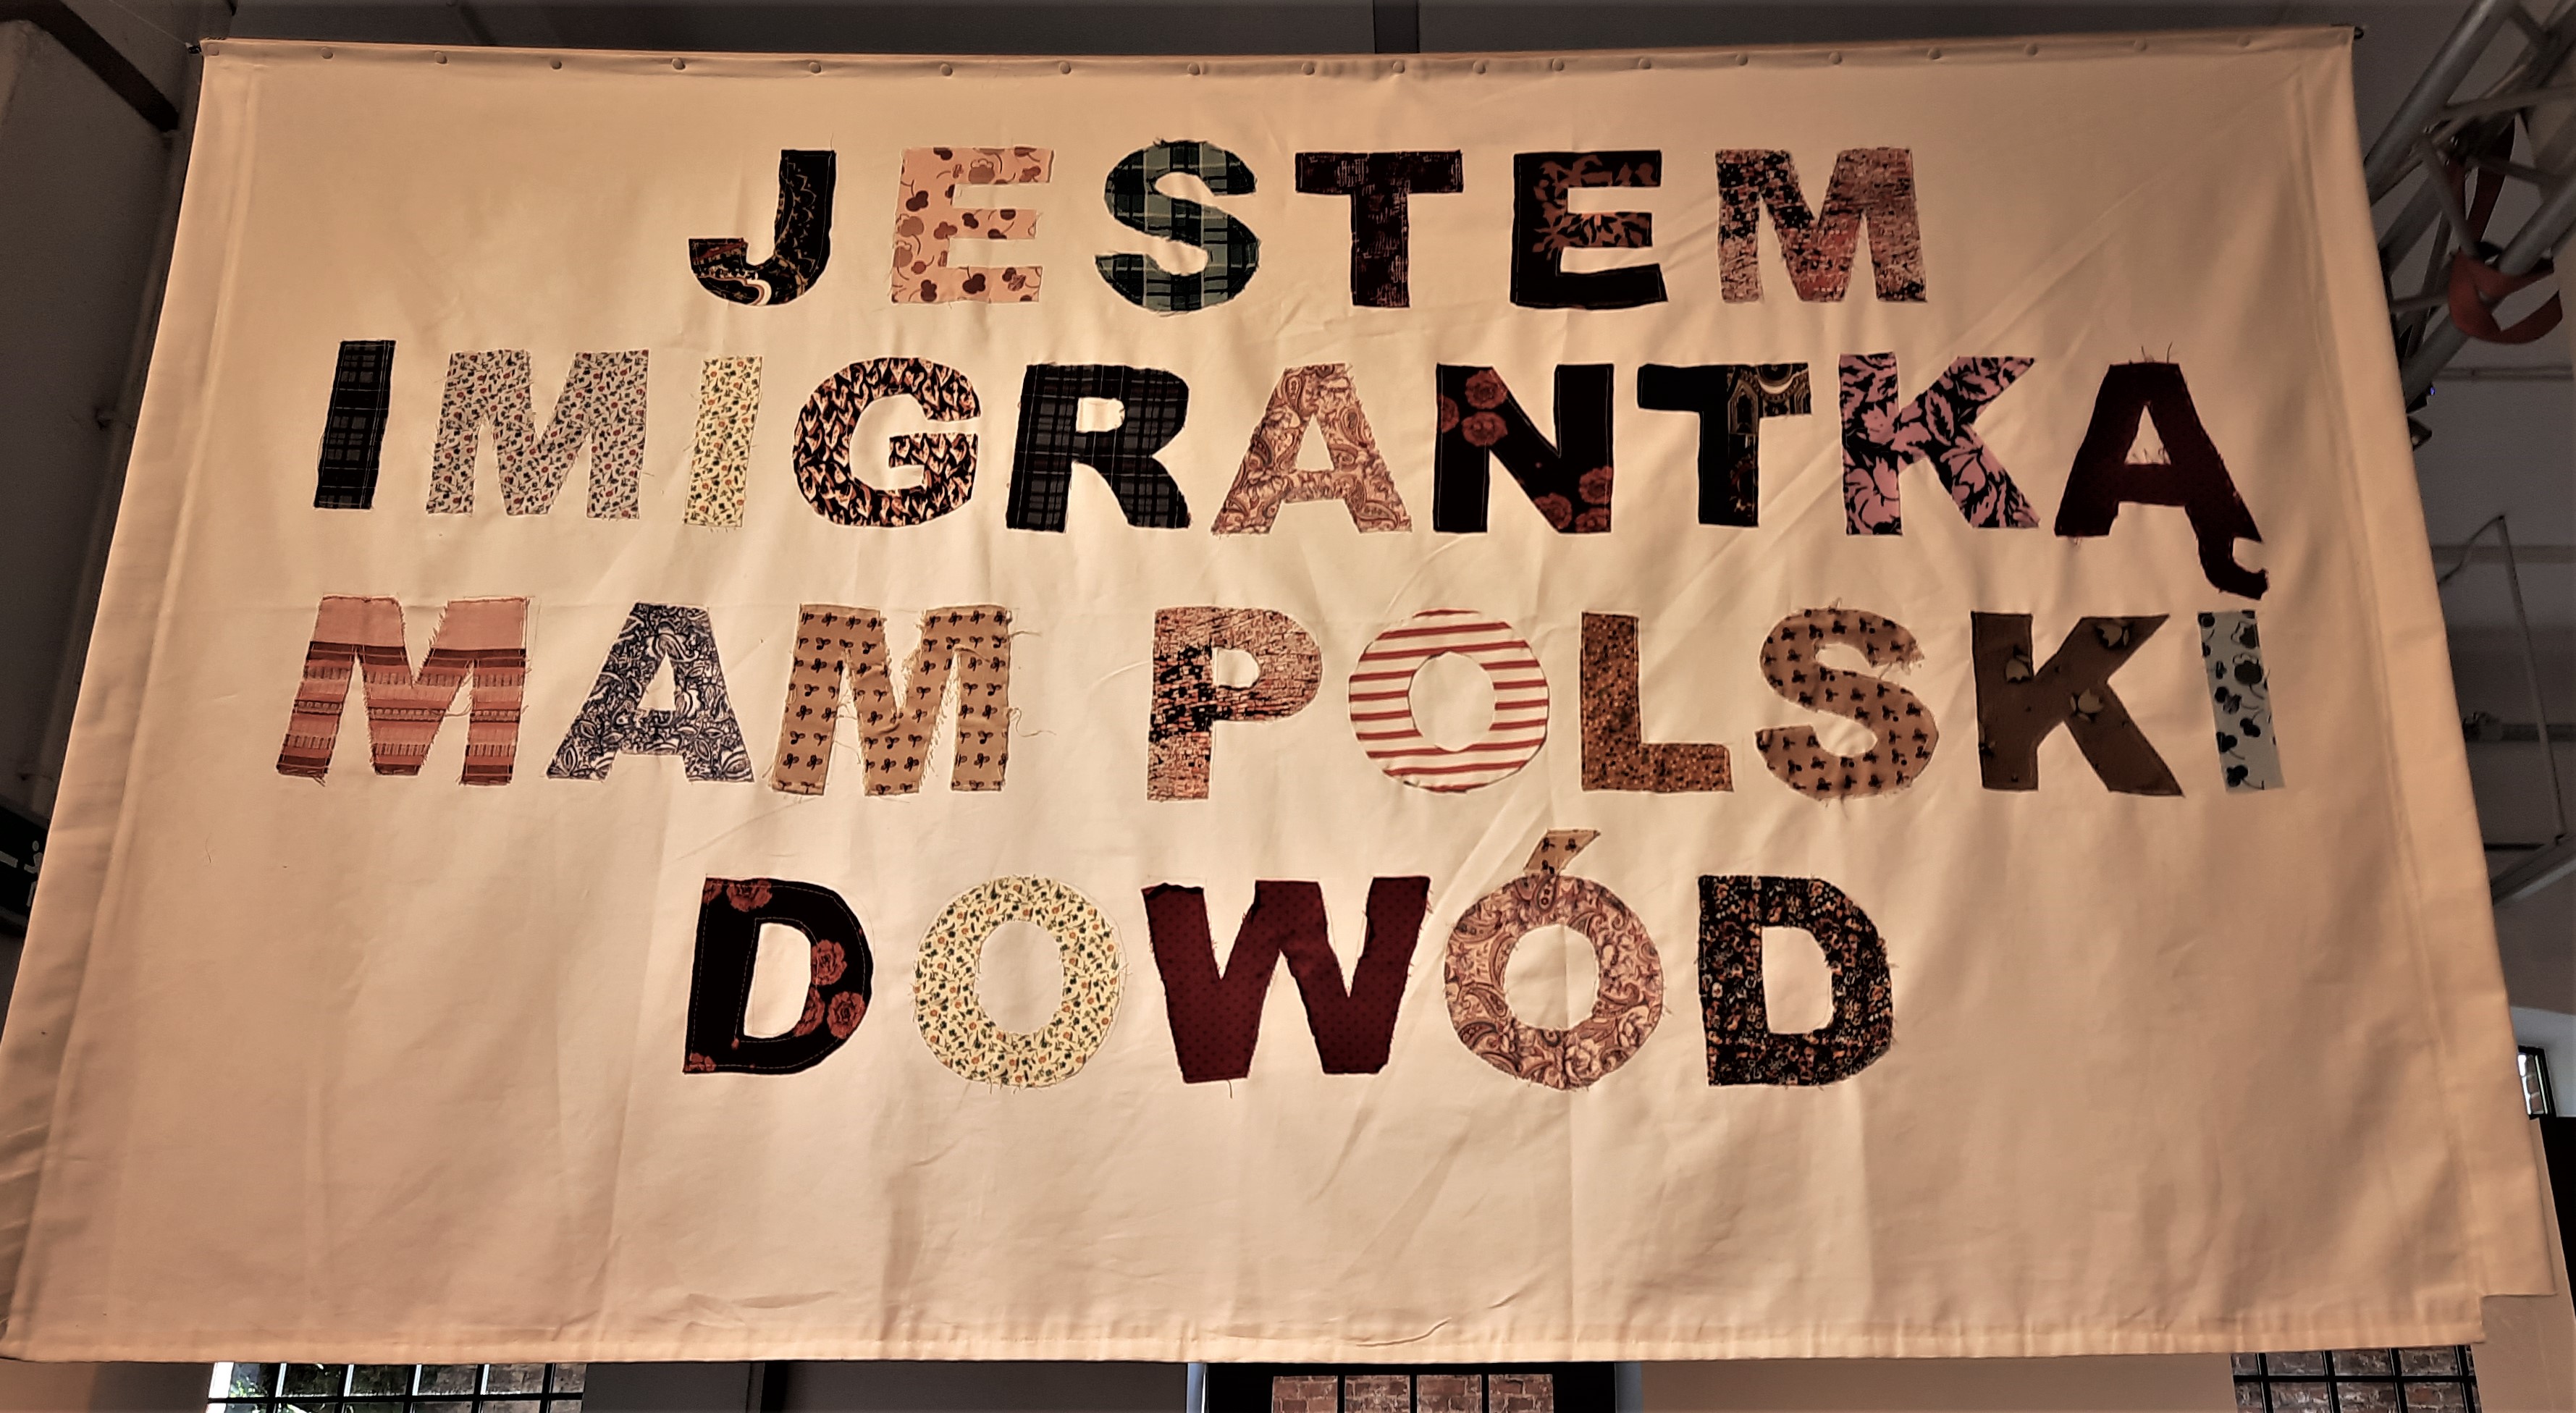 JESTEM
IMIGRANTKĄ
MAM POLSKI
DOWÓD